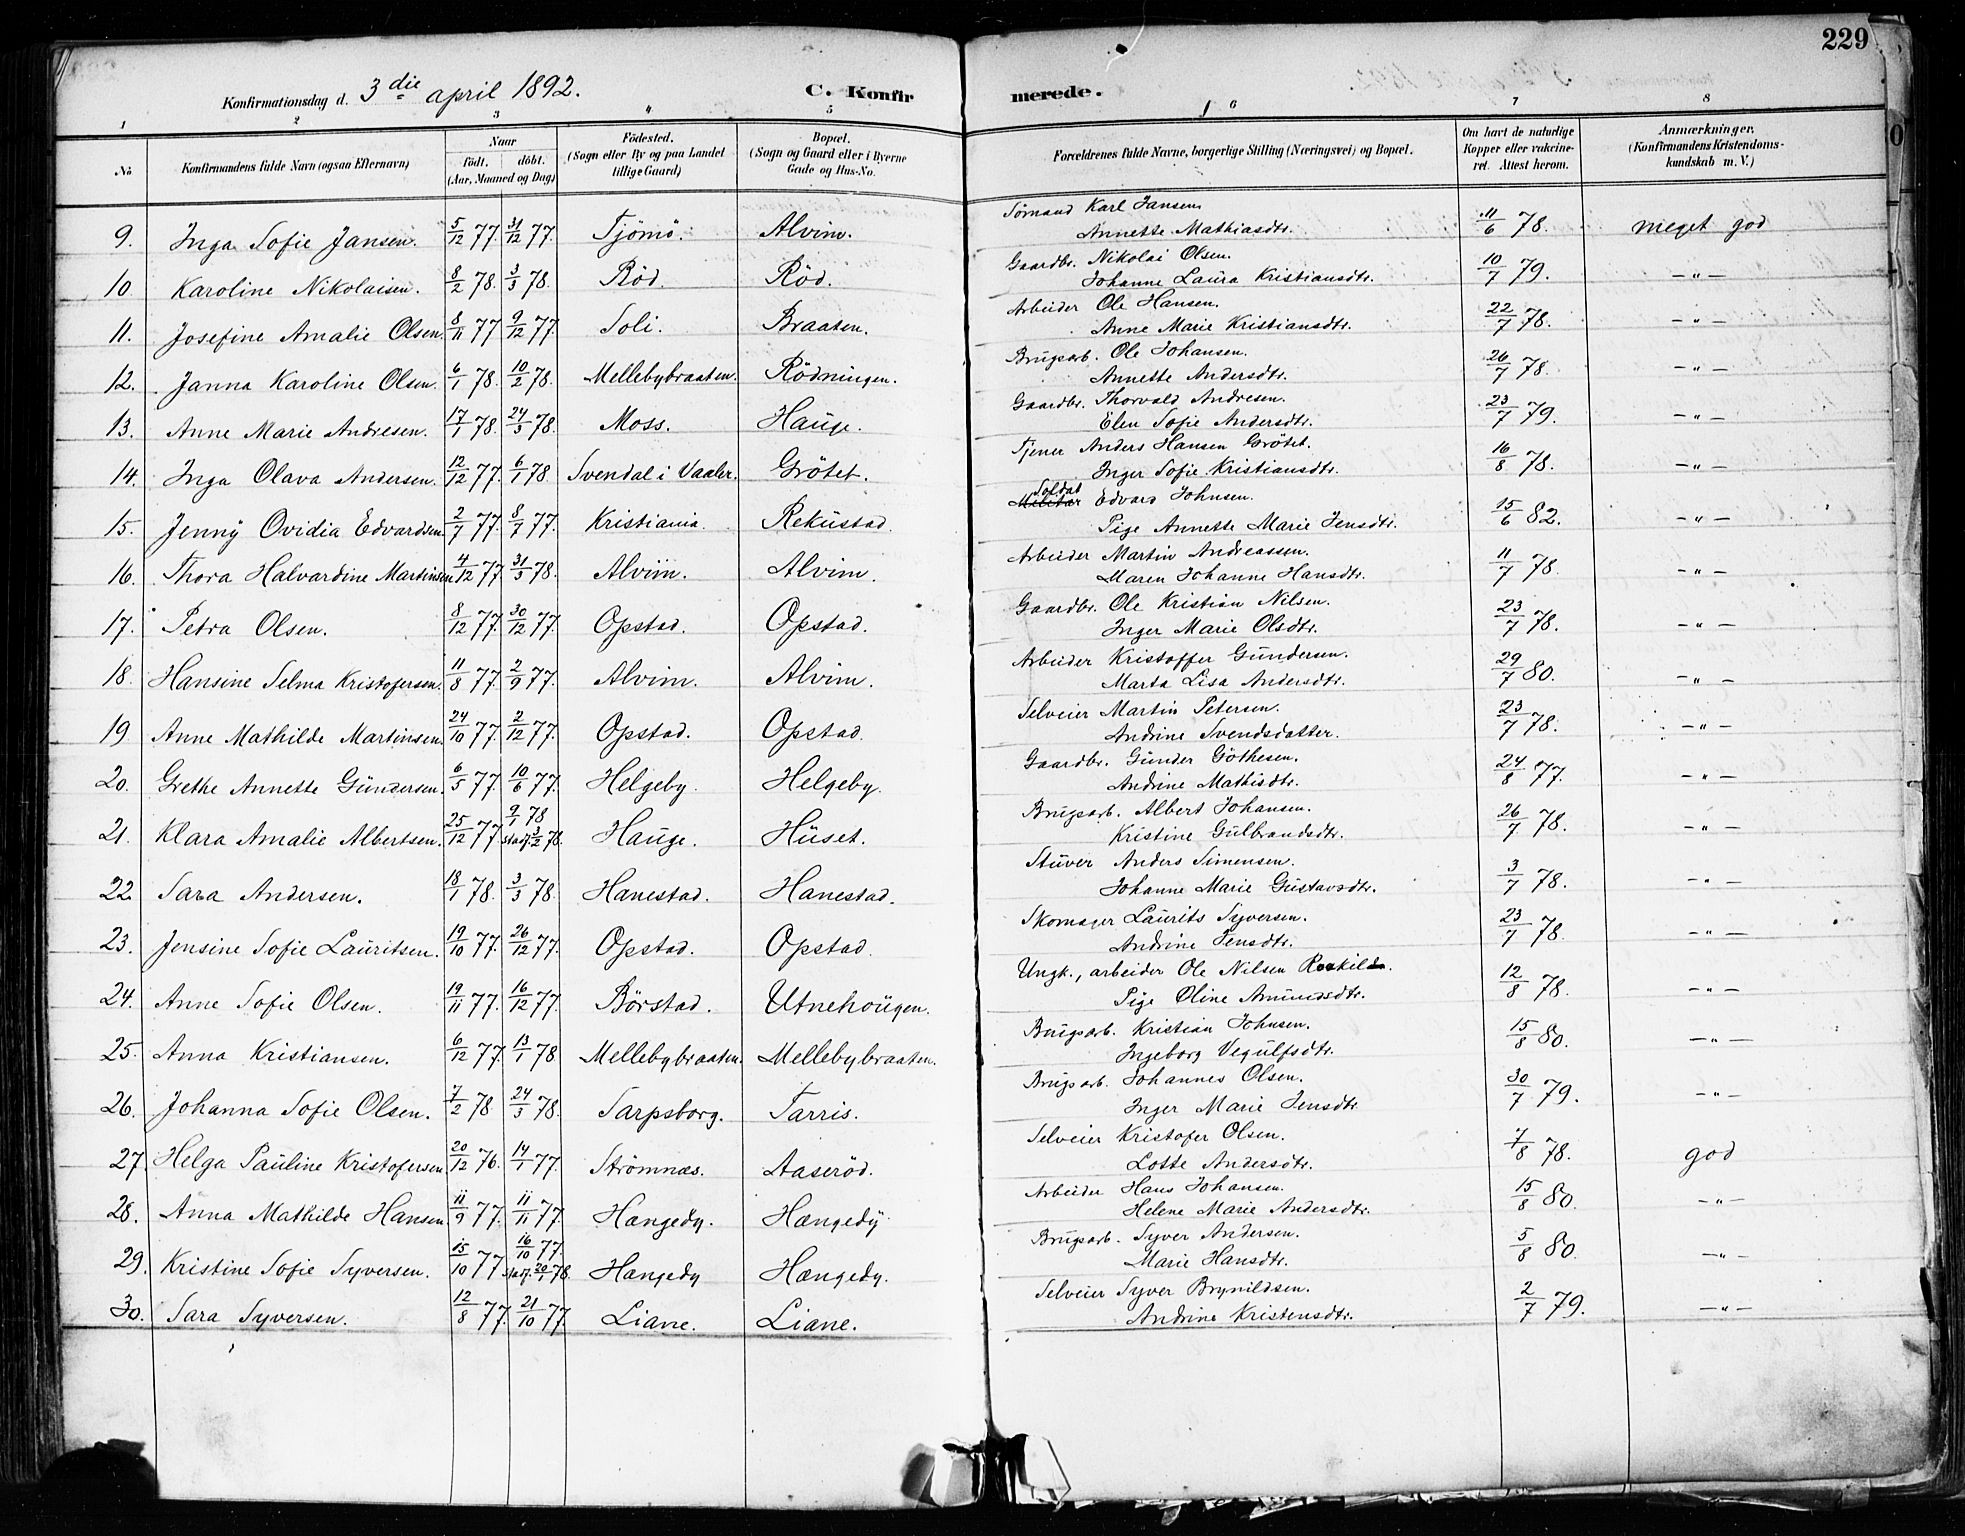 229
Konfirmationsdag d. 3 die april 1892. C. Konfirmerede.
1 2 3 4 5 6 7 8
No Konfirmandens fulde Navn (ogsaa Efternavn) Naar födt. döbt. (Aar, Maaned og Dag) Födested. (Sogn eller By og paa Landet tillige Gaard) Bopæl. (Sogn og Gaard eller i Byerne Gade og Hus-No. Forældrenes fulde Navne, borgerlige Stilling (Næringsvei) og Bopæl. Om havt de naturlige Kopper eller vakcineret. Attest herom. Anmærkninger. (Konfirmandens Kristendomskundskab m. V.)
9. Inga Sofie Jansen. 5/12 77. 31/12 77. Tjömö. Alvim. Sömand Karl Jansen. 11/6 78. meget god
Annette Mathiasdtr.
10 Karoline Nikolaisen. 8/2 78. 3/3 78. Röd. Röd. Gaardbr. Nikolai Olsen. 10/7 79. -"-
Johanne Laura Kristiansdtr.
11. Josefine Amalie Olsen. 8/11 77 9/12 77. Soli. Braaten. Arbeider Ole Hansen. 22/7 78. -"-
Anne Marie Kristiansdtr.
12. Janna Karoline Olsen. 6/1 78. 10/2 78. Mellebybraaten. Rödningen. Brugsarb. Ole Johansen. 26/7 78. -"-
Annette Andersdtr.
13. Anne Marie Andresen. 17/1 78. 24/3 78. Moss. Hauge. Gaardbr. Thorvald Andresen. 23/7 79. -"-
Elen Sofie Andersdtr.
14. Inga Olava Andersen. 12/12 77. 6/1 78. Svendal i Vaaler. Grötet. Tjener Anders Hansen Grötet. 16/8 78. -"-
Inger Sofie Kristiansdtr.
15. Jenny Ovidia Edvardsen 2/7 77. 8/7 77. Kristiania. Rekustad. Militær Soldat Edvard Johnsen. 15/6 82. -"-
Pige Annette Marie Jensdtr.
16. Thora Halvardine Martinsen 4/12 77. 31/3 78. Alvim. Alvim. Arbeider Martin Andreassen. 11/7 78. -"-
Maren Johanne Hansdtr.
17. Petra Olsen. 8/12 77. 30/12 77. Opstad. Opstad. Gaardbr. Ole Kristian Nilsen. 23/7 78. -"-
Inger Marie Olsdtr.
18. Hansine Selma Kristofersen. 11/8 77. 2/9 77. Alvim. Alvim. Arbeider Kristoffer Gundersen. 29/7 80. -"-
Marta Lisa Andersdtr.
19 Anne Mathilde Martinsen. 24/10 77. 2/12 77. Opstad. Opstad. Selveier Martin Petersen. 23/7 78. -"-
Andrine Svendsdatter.
20. Grethe Annette Gundersen. 6/5 77. 10/6 77. Helgeby. Helgeby. Gaardbr. Gunder Göthesen. 24/8 77. -"-
Andrine Mathisdtr.
21. Klara Amalie Albertsen. 25/12 77. 9/1 78 stadf. 3/2 78. Hauge. Huset. Brugsarb. Albert Johansen. 26/7 78. -"-
Kristine Gulbrandsdtr.
22. Sara Andersen. 18/1 78. 3/3 78. Hanestad. Hanestad. Stuver Anders Simensen. 3/7 78. -"-
Johanne Marie Gustavsdtr.
23. Jensine Sofie Lauritsen. 19/10 77. 26/12 77. Opstad. Opstad. Skomager Laurits Syversen. 23/7 78. -"-
Andrine Jensdtr.
24. Anne Sofie Olsen. 19/11 77. 16/12 77. Börstad. Utnehougen. Ungk., arbeider Ole Nilsen Roskild. 12/8 78. -"-
Pige Oline Amundsdtr.
25. Anna Kristiansen. 6/12 77. 13/1 78 Mellebybraaten. Mellebybraaten. Brugsarb. Kristian Johnsen. 15/8 80. -"-
Ingeborg Vegulfsdtr.
26. Johanna Sofie Olsen. 7/2 78 24/3 78. Sarpsborg. Tarris. Brugsarb. Johannes Olsen. 30/7 79. -"-
Inger Marie Jensdtr.
27. Helga Pauline Kristofersen 20/12 76. 14/1 77. Strömnæs. Aaseröd. Selveier Kristofer Olsen. 7/8 78. god
Lotte Andersdtr.
28. Anna Mathilde Hansen 11/9 77. 11/11 77. Hængedy. Hængedy. Arbeider Hans Johansen. 15/8 80. -"-
Helene Marie Andersdtr.
29. Kristine Sofie Syversen. 15/10 77 16/10 77. stadf. 20/1 78. Hængedy Hængedy. Brugsarb. Syver Andersen. 5/8 80. -"-
Marie Hansdtr.
30. Sara Syversen. 12/8 77. 21/10 77. Liane. Liane. Selveier Syver Brynildsen. 2/7 79. -"-
Andrine Kristensdtr.